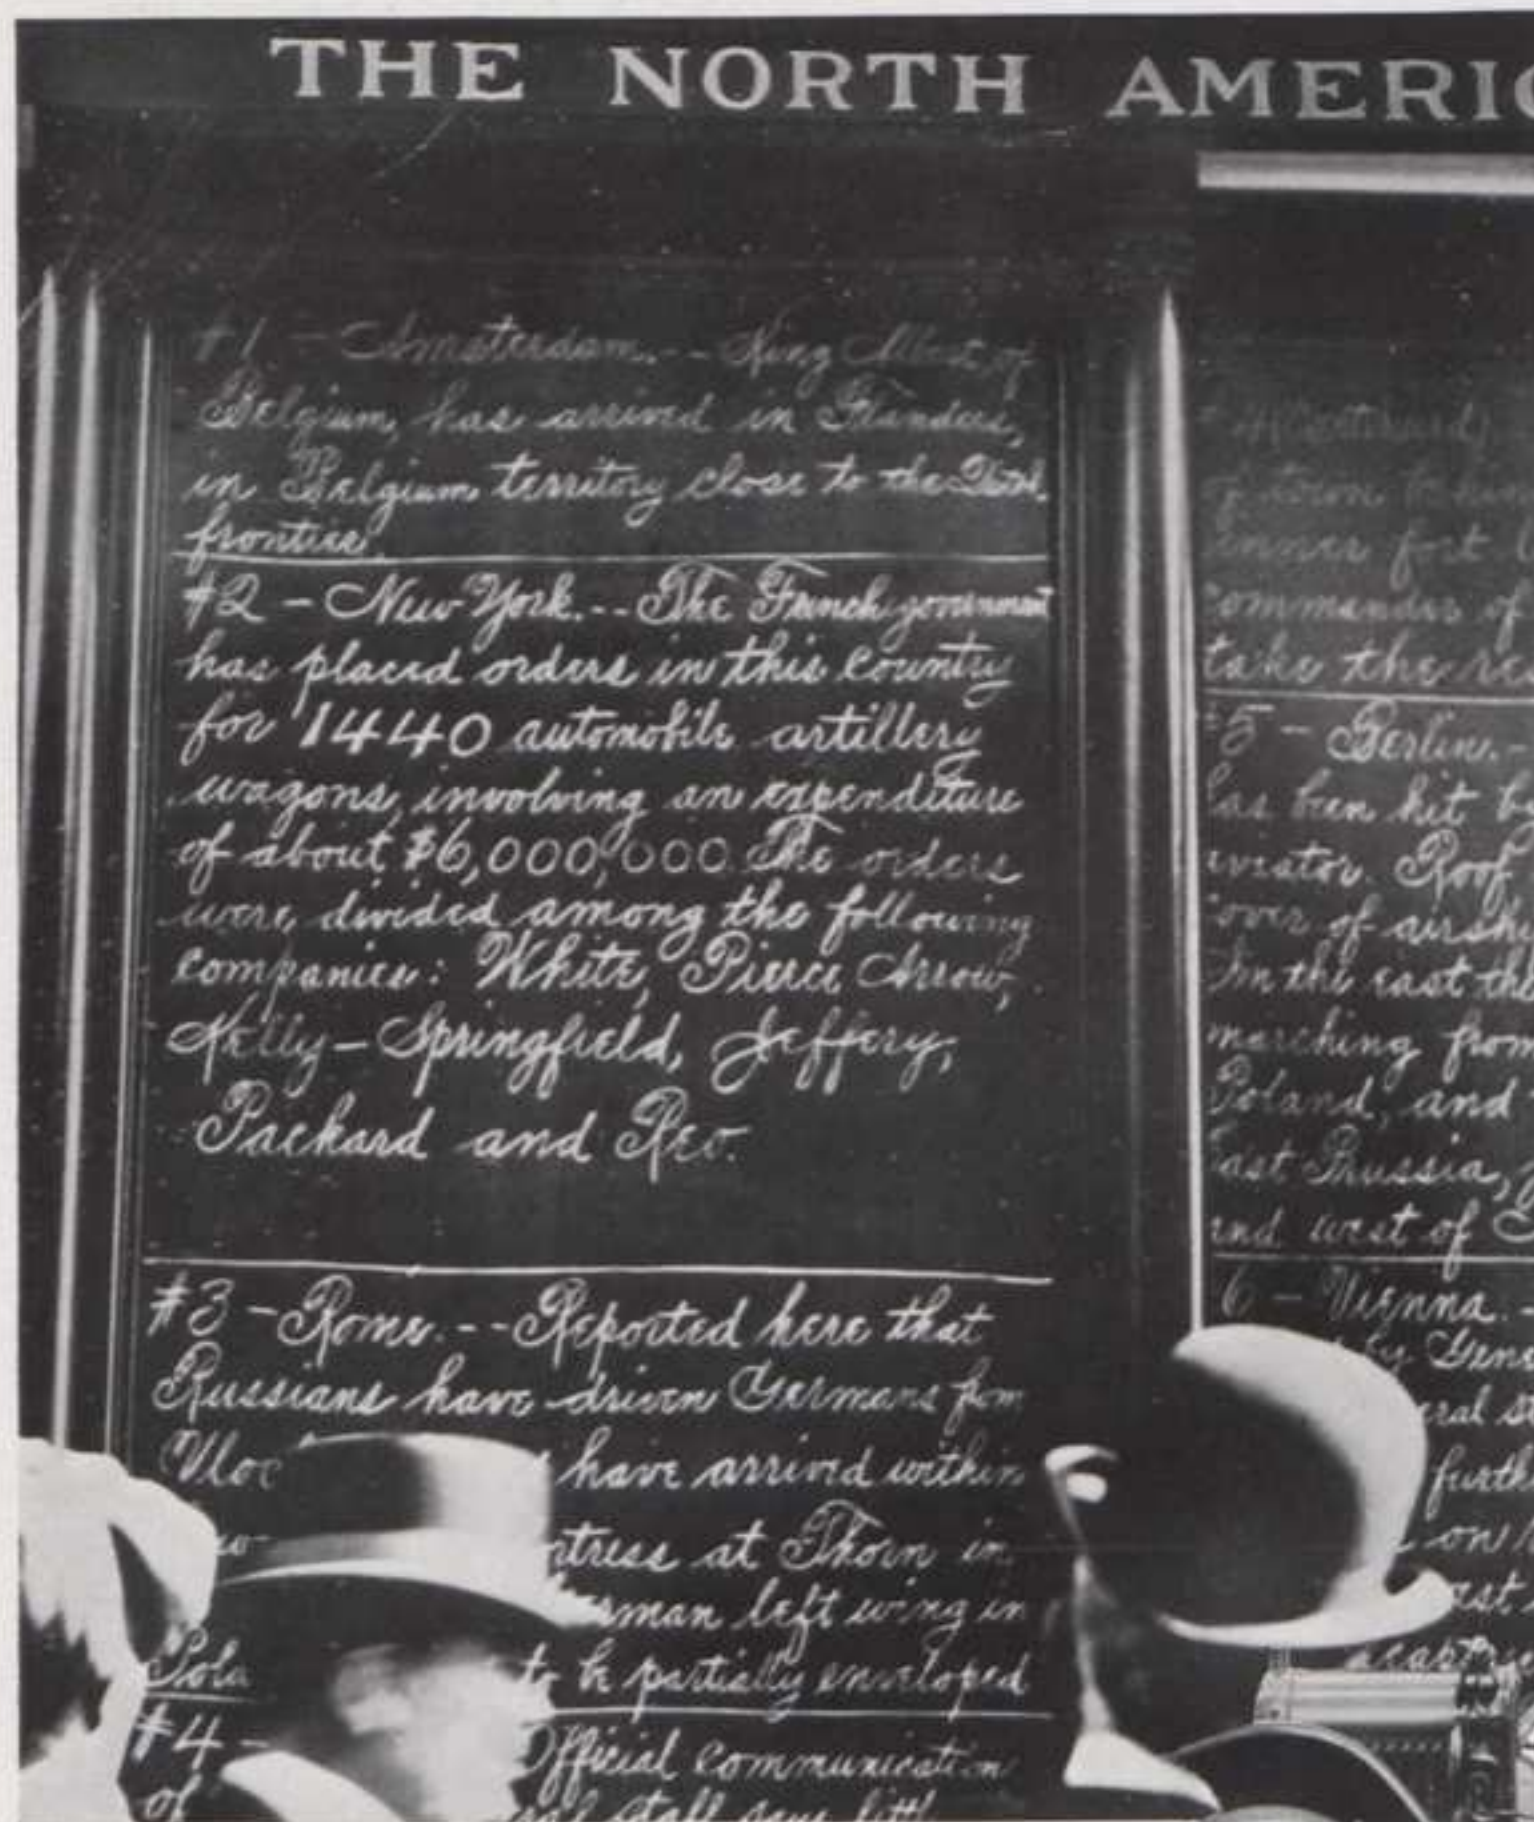 THE NORTH AMERIC
#1 - Amsterdam. -- King Albert of
Belgium, has arrived in Flanders,
in Belgium territory close to the
frontier.
#2 - New York. -- The French government
has placed orders in this country
for 1440 automobile artillery
wagons, involving an expenditure
of about $6,000,000. The orders
were divided among the following
companies: White, Pierce Arrow,
Kelly-Springfield, Jeffery,
Packard and Reo.
#3 - Rome. --- Reported here that
Russians have driven Germans from
have arrived within
tress at Thorn in
rman left wing in
Pola to be partially enveloped
#4 - Official communication
of ral staff says little
town
inner fort
commander of
take the
#5 - Berlin. -
has been hit by
aviator. Roof
over of airsh
In the east the
marching from
Poland, and
East Prussia,
and west of
6 - Vienna. -
by Gene
eral s
furth
on
ast